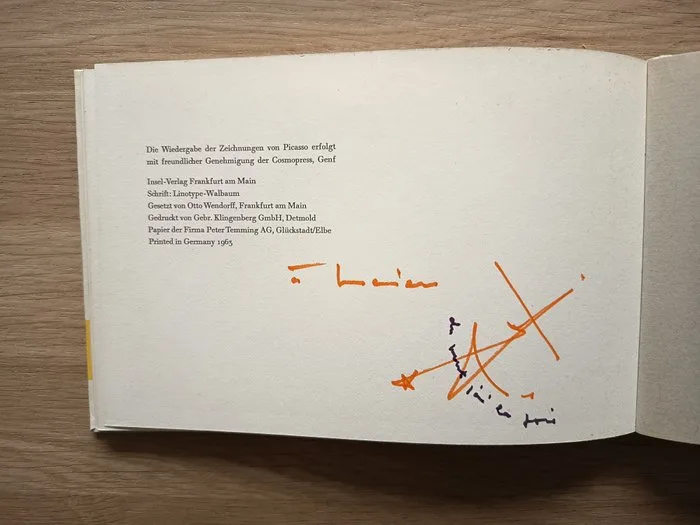 Die Wiedergabe der Zeichnungen von Picasso erfolgt
mit freundlicher Genehmigung der Cosmopress, Genf
Insel-Verlag Frankfurt am Main
Schrift: Linotype-Walbaum
Gesetzt von Otto Wendorff, Frankfurt am Main
Gedruckt von Gebr. Klingenberg GmbH, Detmold
Papier der Firma Peter Temming AG, Glückstadt/Elbe
Printed in Germany 1965